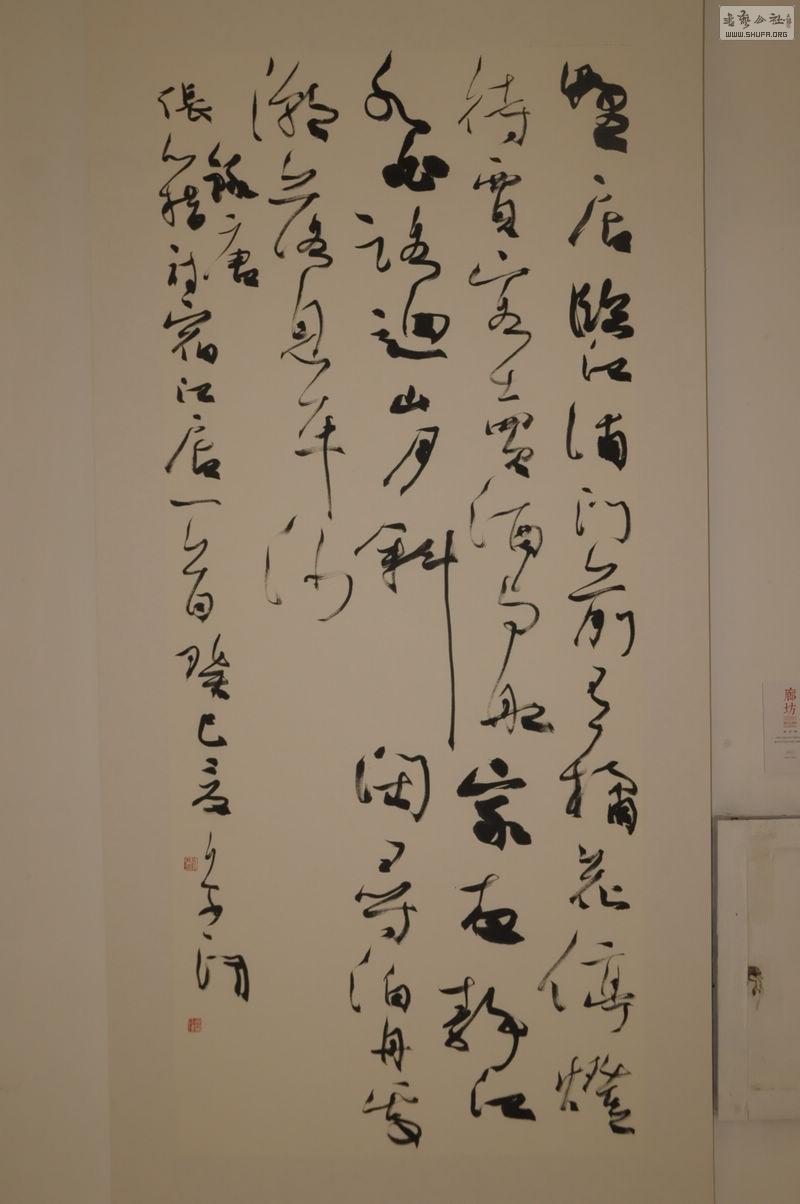 野店臨江浦門前有橘花停燈
待賈客賣酒與船家夜靜江
水白路迴山月斜閑尋泊舟處
潮落見平沙
錄唐
張籍詩宿江店一首癸巳夏
書藝公社
WWW.SHUFA.ORG
廊坊